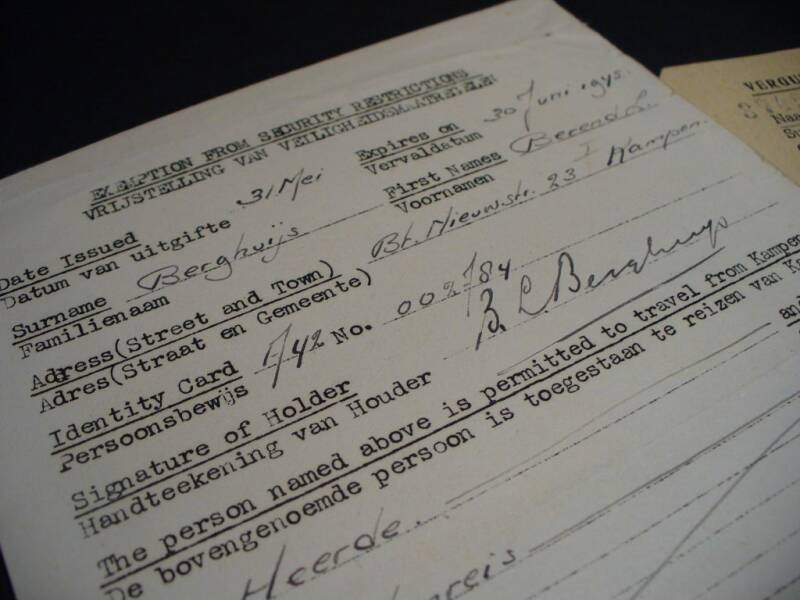 EXEMPTION FROM SECURITY RESTRICTIONS
VRIJSTELLING VAN VEILIGHEIDSMAATREGELEN
Date Issued 31 Mei Expires on 30 Juni 1945.
Datum van uitgifte Vervaldatum
Surname Berghuijs First Names Berend L.
Familienaam Voornamen
Adress(Street and Town) Bt. Nieuwstr. 23 I Kampen.
Adres(Straat en Gemeente)
Identity Card A/42 No. 002784
Persoonsbewijs
Signature of Holder B L Berghuijs
Handteekening van Houder
The person named above is permitted to travel from Kampen
De bovengenoemde persoon is toegestaan te reizen van
Heerde. and
reis
VERGU
Naa